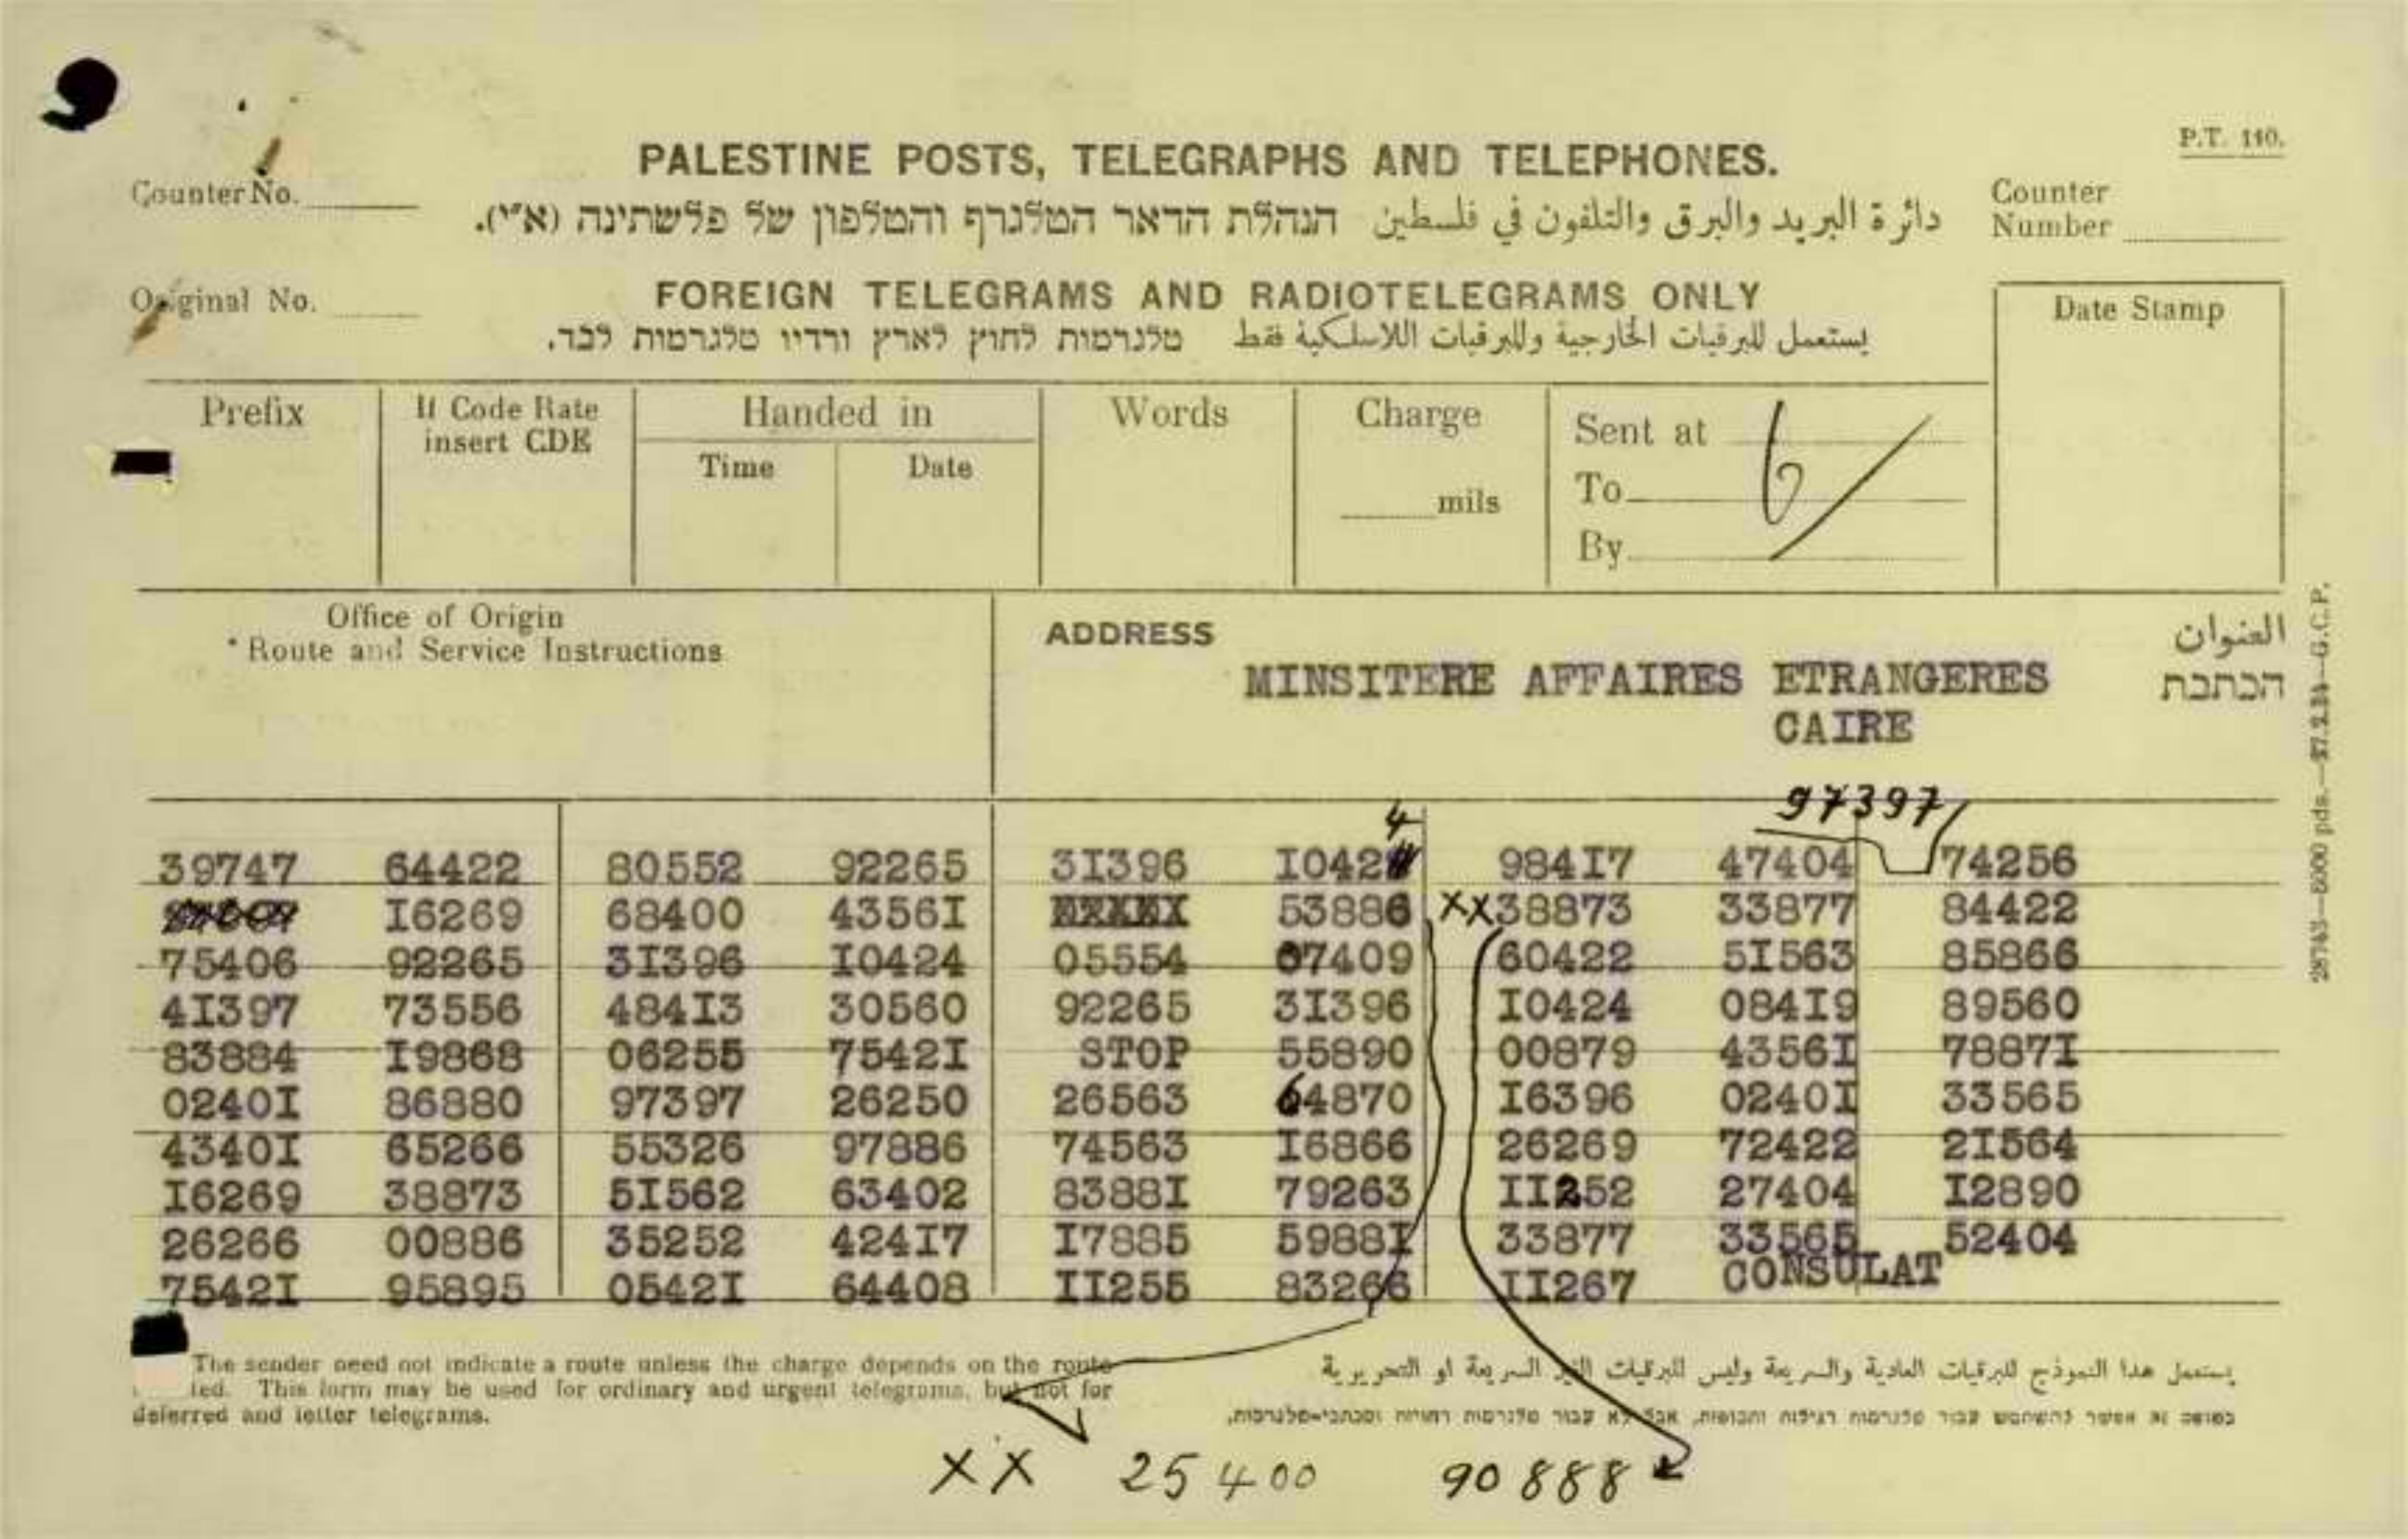 P.T. 110.
PALESTINE POSTS, TELEGRAPHS AND TELEPHONES.
Counter No.
Counter
Number
דائرة البريد والبرق والتلفون في فلسطين הנהלת הדאר הטלגרף והטלפון של פלשתינה (א״י).
Original No.
FOREIGN TELEGRAMS AND RADIOTELEGRAMS ONLY
Date Stamp
يستعمل للبرقيات الخارجية وللبرقيات اللاسلكية فقط טלגרמות לחוץ לארץ ורדיו טלגרמות לבד.
Prefix
If Code Rate
insert CDE
Handed in
Time Date
Words
Charge
mils
Sent at
To
By
6/
Office of Origin
* Route and Service Instructions
ADDRESS
العنوان
הכתבת
MINSITERE AFFAIRES ETRANGERES
CAIRE
97397
4
39747 64422 80552 92265 3I396 I042 984I7 47404 74256
I6269 68400 4356I 53886 XX 38873 33877 84422
75406 92265 3I396 I0424 05554 07409 60422 5I563 85866
4I397 73556 484I3 30560 92265 3I396 I0424 084I9 89560
83884 I9868 06255 7542I STOP 55890 00879 4356I 7887I
0240I 86880 97397 26250 26563 64870 I6396 0240I 33565
4340I 65266 55326 97886 74563 I6866 26269 72422 2I564
I6269 38873 5I562 63402 8388I 79263 II252 27404 I2890
26266 00886 35252 424I7 I7885 5988I 33877 33565 52404
7542I 95895 0542I 64408 II255 83266 II267 CONSULAT
The sender need not indicate a route unless the charge depends on the route
This form may be used for ordinary and urgent telegrams, but not for
deferred and letter telegrams.
يستعمل هذا النموذج للبرقيات العادية والسريعة وليس للبرقيات الغير السريعة او التحريرية
בטופס זה אפשר להשתמש עבור טלגרמות רגילות ותכופות, אבל לא עבור טלגרמות דחויות ומכתבי-טלגרמות.
XX 25400 90888